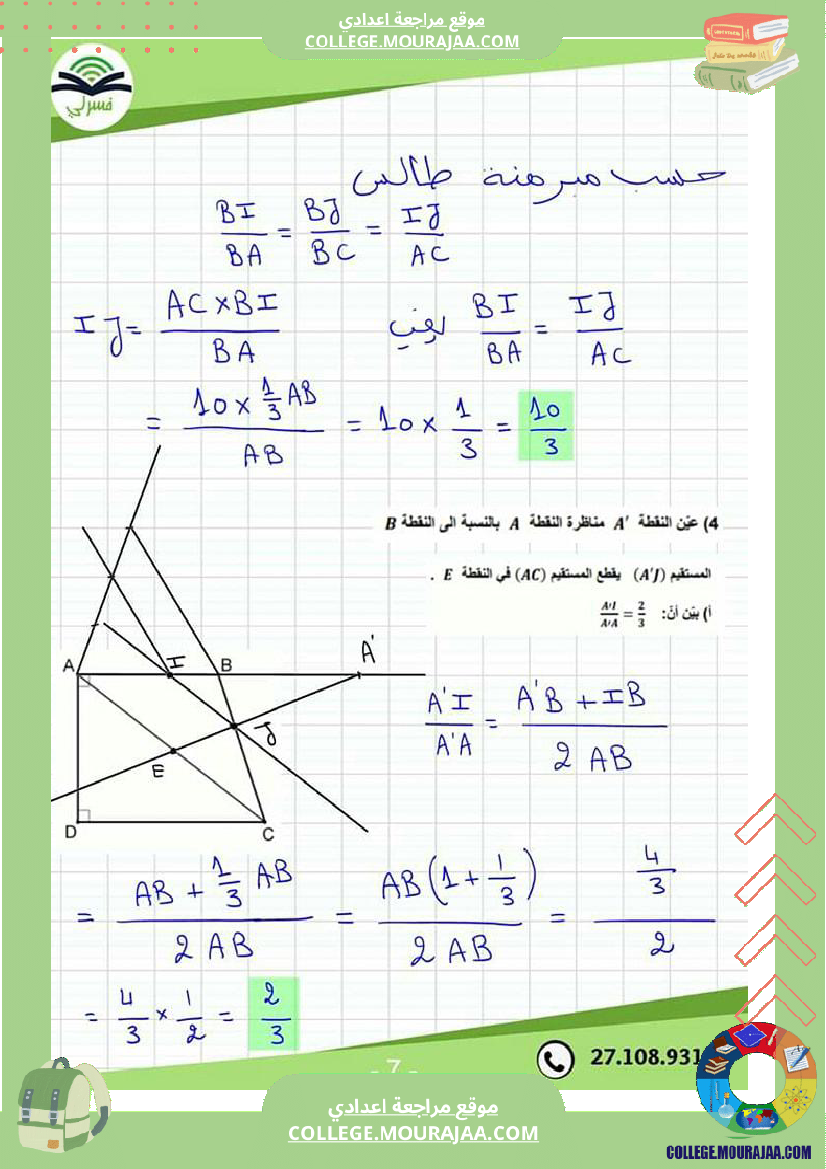 موقع مراجعة اعدادي
COLLEGE.MOURAJAA.COM
فسرلي
حسب مبرهنة طالس
BI/BA = BJ/BC = IJ/AC
يعني BI/BA = IJ/AC
IJ = AC×BI/BA
= 10 × 1/3 AB / AB = 10 × 1/3 = 10/3
4) عيّن النقطة A' مناظرة النقطة A بالنسبة الى النقطة B
المستقيم (A'J) يقطع المستقيم (AC) في النقطة E .
أ) بيّن أنّ: A'I/A'A = 2/3
A I B A'
J
E
D C
A'I/A'A = A'B + IB / 2 AB
= AB + 1/3 AB / 2 AB = AB(1 + 1/3) / 2 AB = 4/3 / 2
= 4/3 × 1/2 = 2/3
- 7 -
27.108.931
موقع مراجعة اعدادي
COLLEGE.MOURAJAA.COM
COLLEGE.MOURAJAA.COM